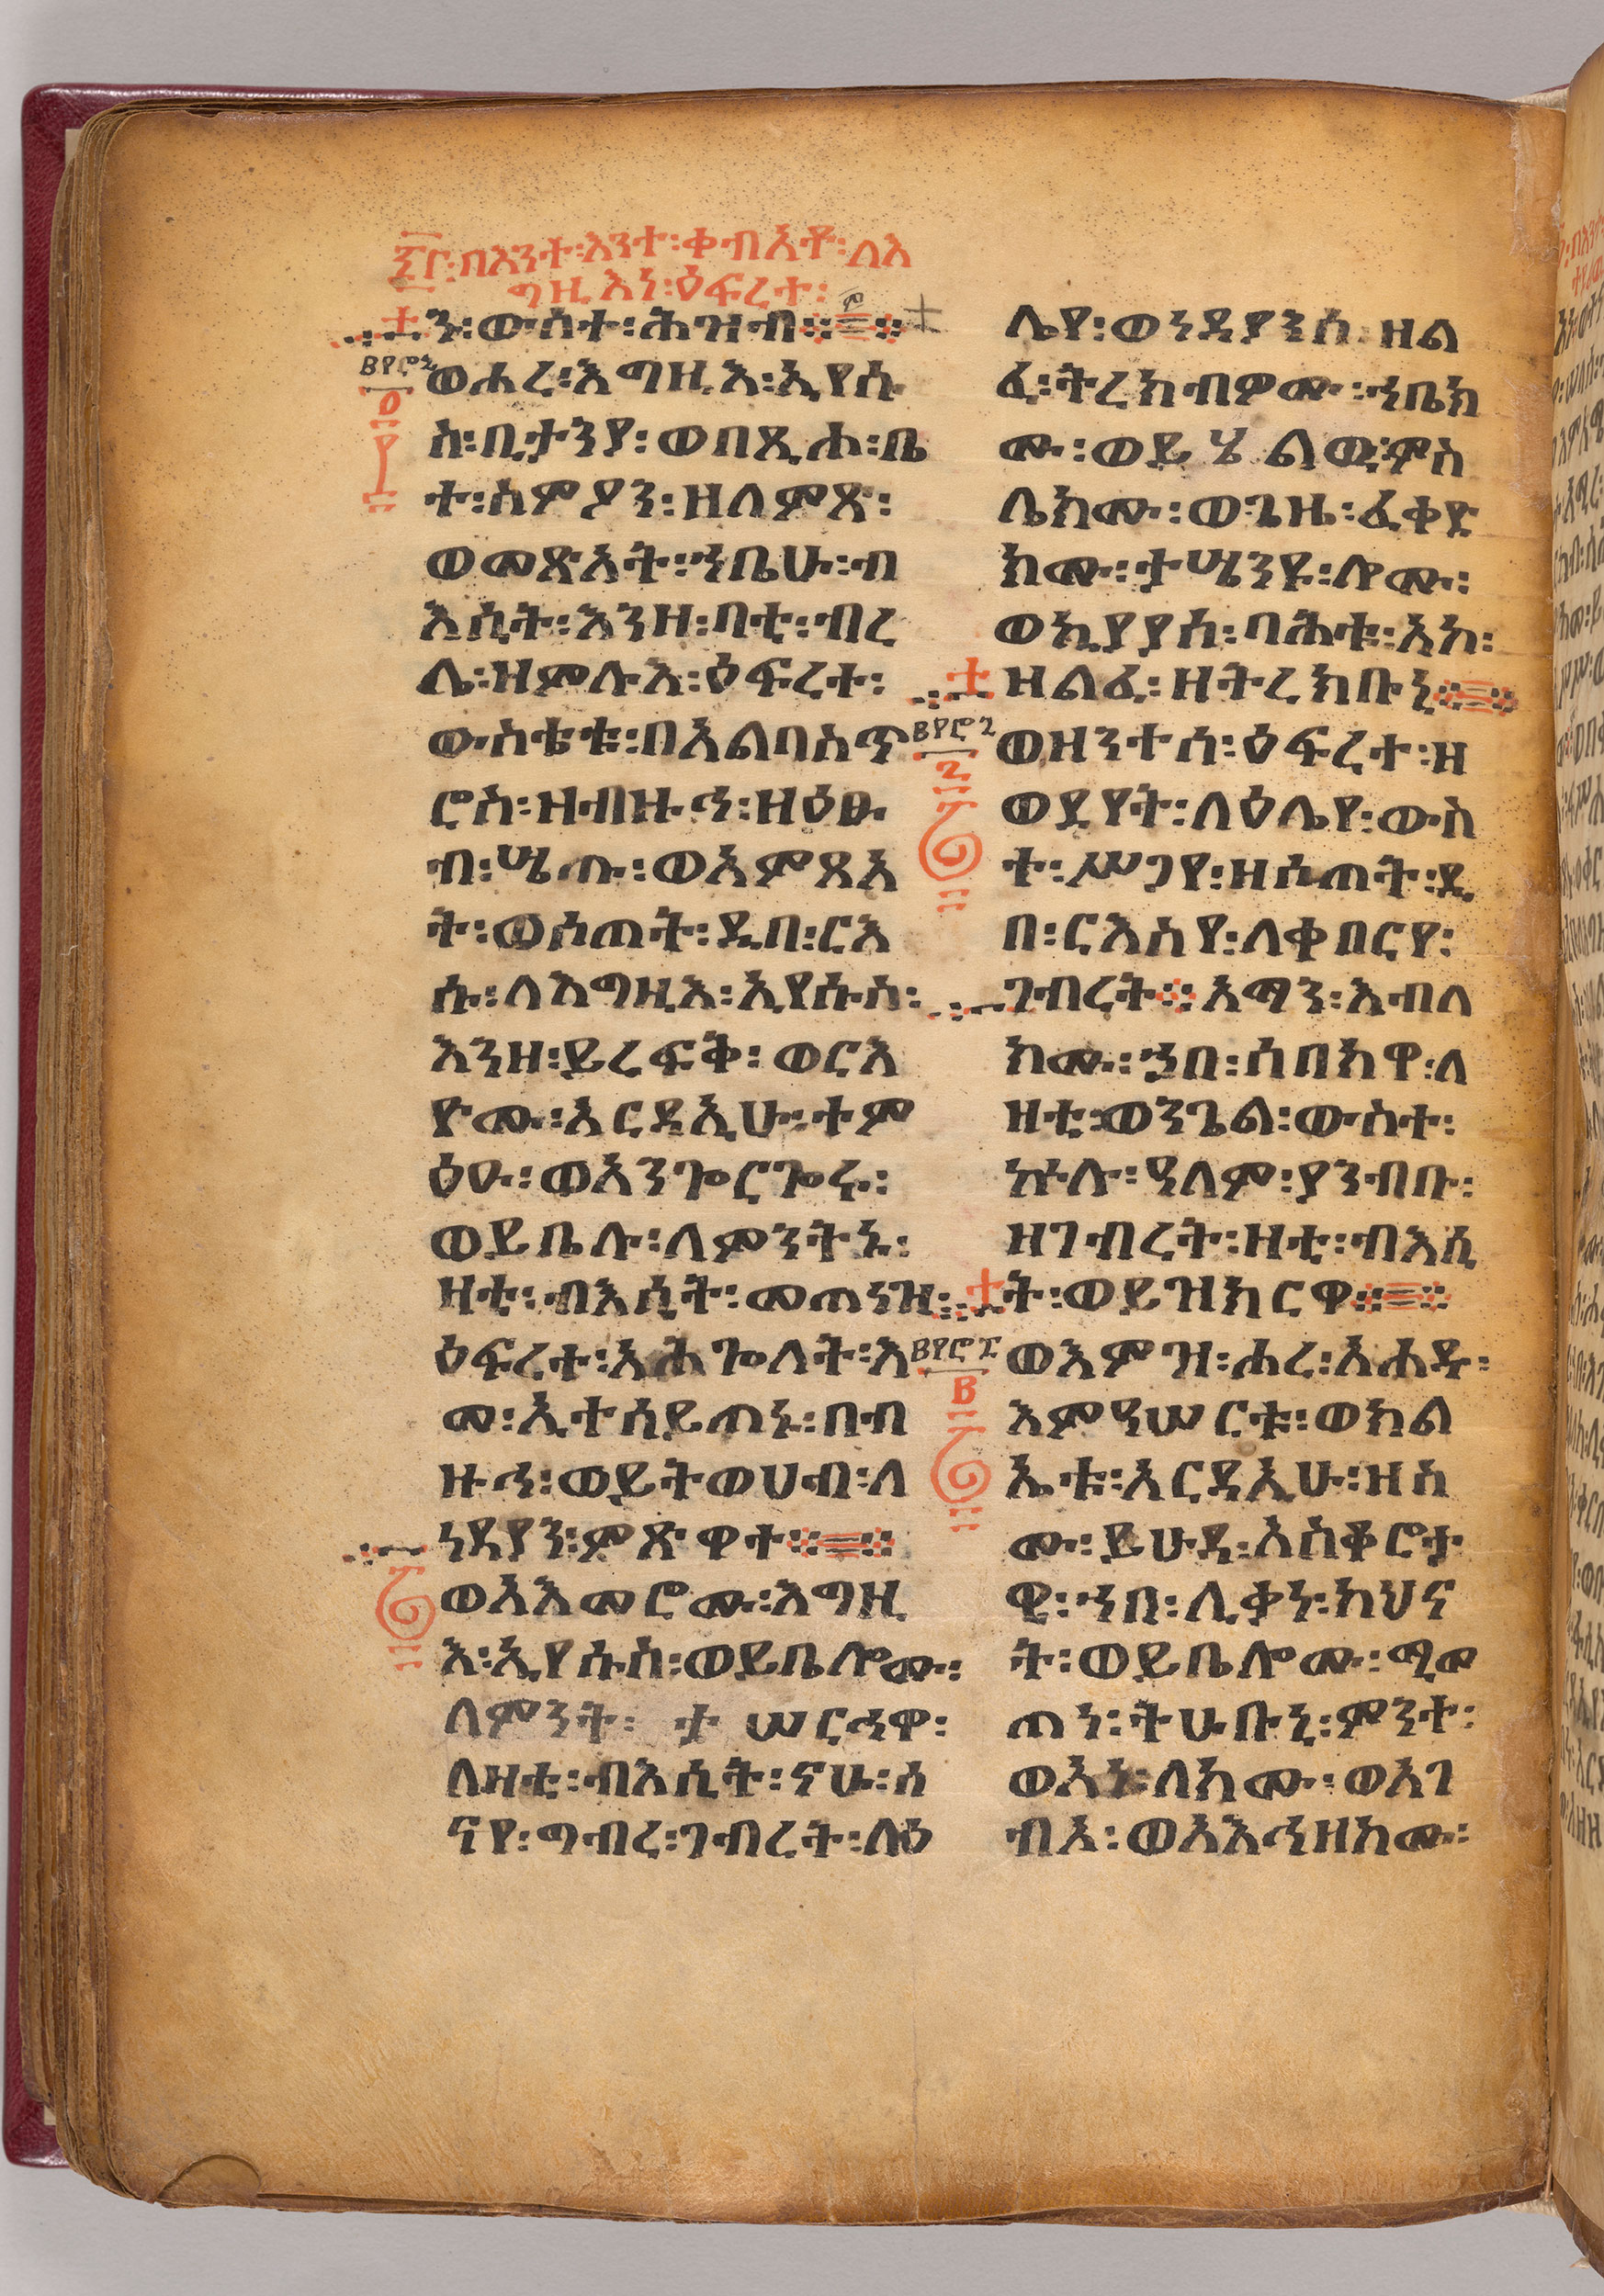 ፷፫፡በእንተ፡እንተ፡ቀብአቶ፡ለእ
ግዚእነ፡ዕፍረተ፡
ን፡ውስተ፡ሕዝብ፨
ወሐረ፡እግዚእ፡ኢየሱ
ስ፡ቢታንያ፡ወበጺሖ፡ቤ
ተ፡ስምዖን፡ዘለምጽ፡
ወመጽአት፡ኀቤሁ፡ብ
እሲት፡እንዘ፡ባቲ፡ብረ
ሌ፡ዘምሉእ፡ዕፍረተ፡
ውስቴቱ፡በአልባስጥ
ሮስ፡ዘብዙኅ፡ዘዕፁ
ብ፡ሤጡ፡ወአምጽአ
ት፡ወሶጠት፡ዲበ፡ርእ
ሱ፡ለእግዚእ፡ኢየሱስ፡
እንዘ፡ይረፍቅ፡ወርእ
ዮሙ፡አርዳኢሁ፡ተም
ዕዑ፡ወአንጐርጐሩ፡
ወይቤሉ፡ለምንትኑ፡
ዛቲ፡ብእሲት፡መጠነዝ፡
ዕፍረተ፡አሕጐለት፡እ
መ፡ኢተሰይጠኑ፡በብ
ዙኅ፡ወይትወሀብ፡ለ
ነዳያን፡ምጽዋተ፨
ወአእመሮሙ፡እግዚ
እ፡ኢየሱስ፡ወይቤሎሙ፡
ለምንት፡ ታ ሠርሕዋ፡
ለዛቲ፡ብእሲት፡ናሁ፡ሠ
ናየ፡ግብረ፡ገብረት፡ላዕ
ሌየ፡ወነዳያንሰ፡ዘል
ፈ፡ትረክብዎሙ፡ኀቤክ
ሙ፡ወይሄልዉ፡ምስ
ሌክሙ፡ወጊዜ፡ፈቀድ
ክሙ፡ታሤንዩ፡ሎሙ፡
ወኪያየሰ፡ባሕቱ፡አኮ፡
ዘልፈ፡ዘትረክቡኒ፨
ወዘንተሰ፡ዕፍረተ፡ዘ
ወደየት፡ላዕሌየ፡ውስ
ተ፡ሥጋየ፡ዘሶጠት፡ዲ
በ፡ርእስየ፡ለቀበርየ፡
ገብረት፨አማን፡እብለ
ክሙ፡ኀበ፡ሰበክዋ፡ለ
ዛቲ፡ወንጌል፡ውስተ፡
ኵሉ፡ዓለም፡ያንብቡ፡
ዘገብረት፡ዛቲ፡ብእሲ
ት፡ወይዝክርዋ፨
ወእምዝ፡ሐረ፡አሐዱ፡
እምዓሠርቱ፡ወክል
ኤቱ፡አርዳኢሁ፡ዘስ
ሙ፡ይሁዳ፡አስቆሮታ
ዊ፡ኀበ፡ሊቃነ፡ካህና
ት፡ወይቤሎሙ፡ሚመ
ጠነ፡ትሁቡኒ፡ምንተ፡
ወአነ፡ለክሙ፡ወአገ
ብእ፡ወአእኅዘክሙ፡